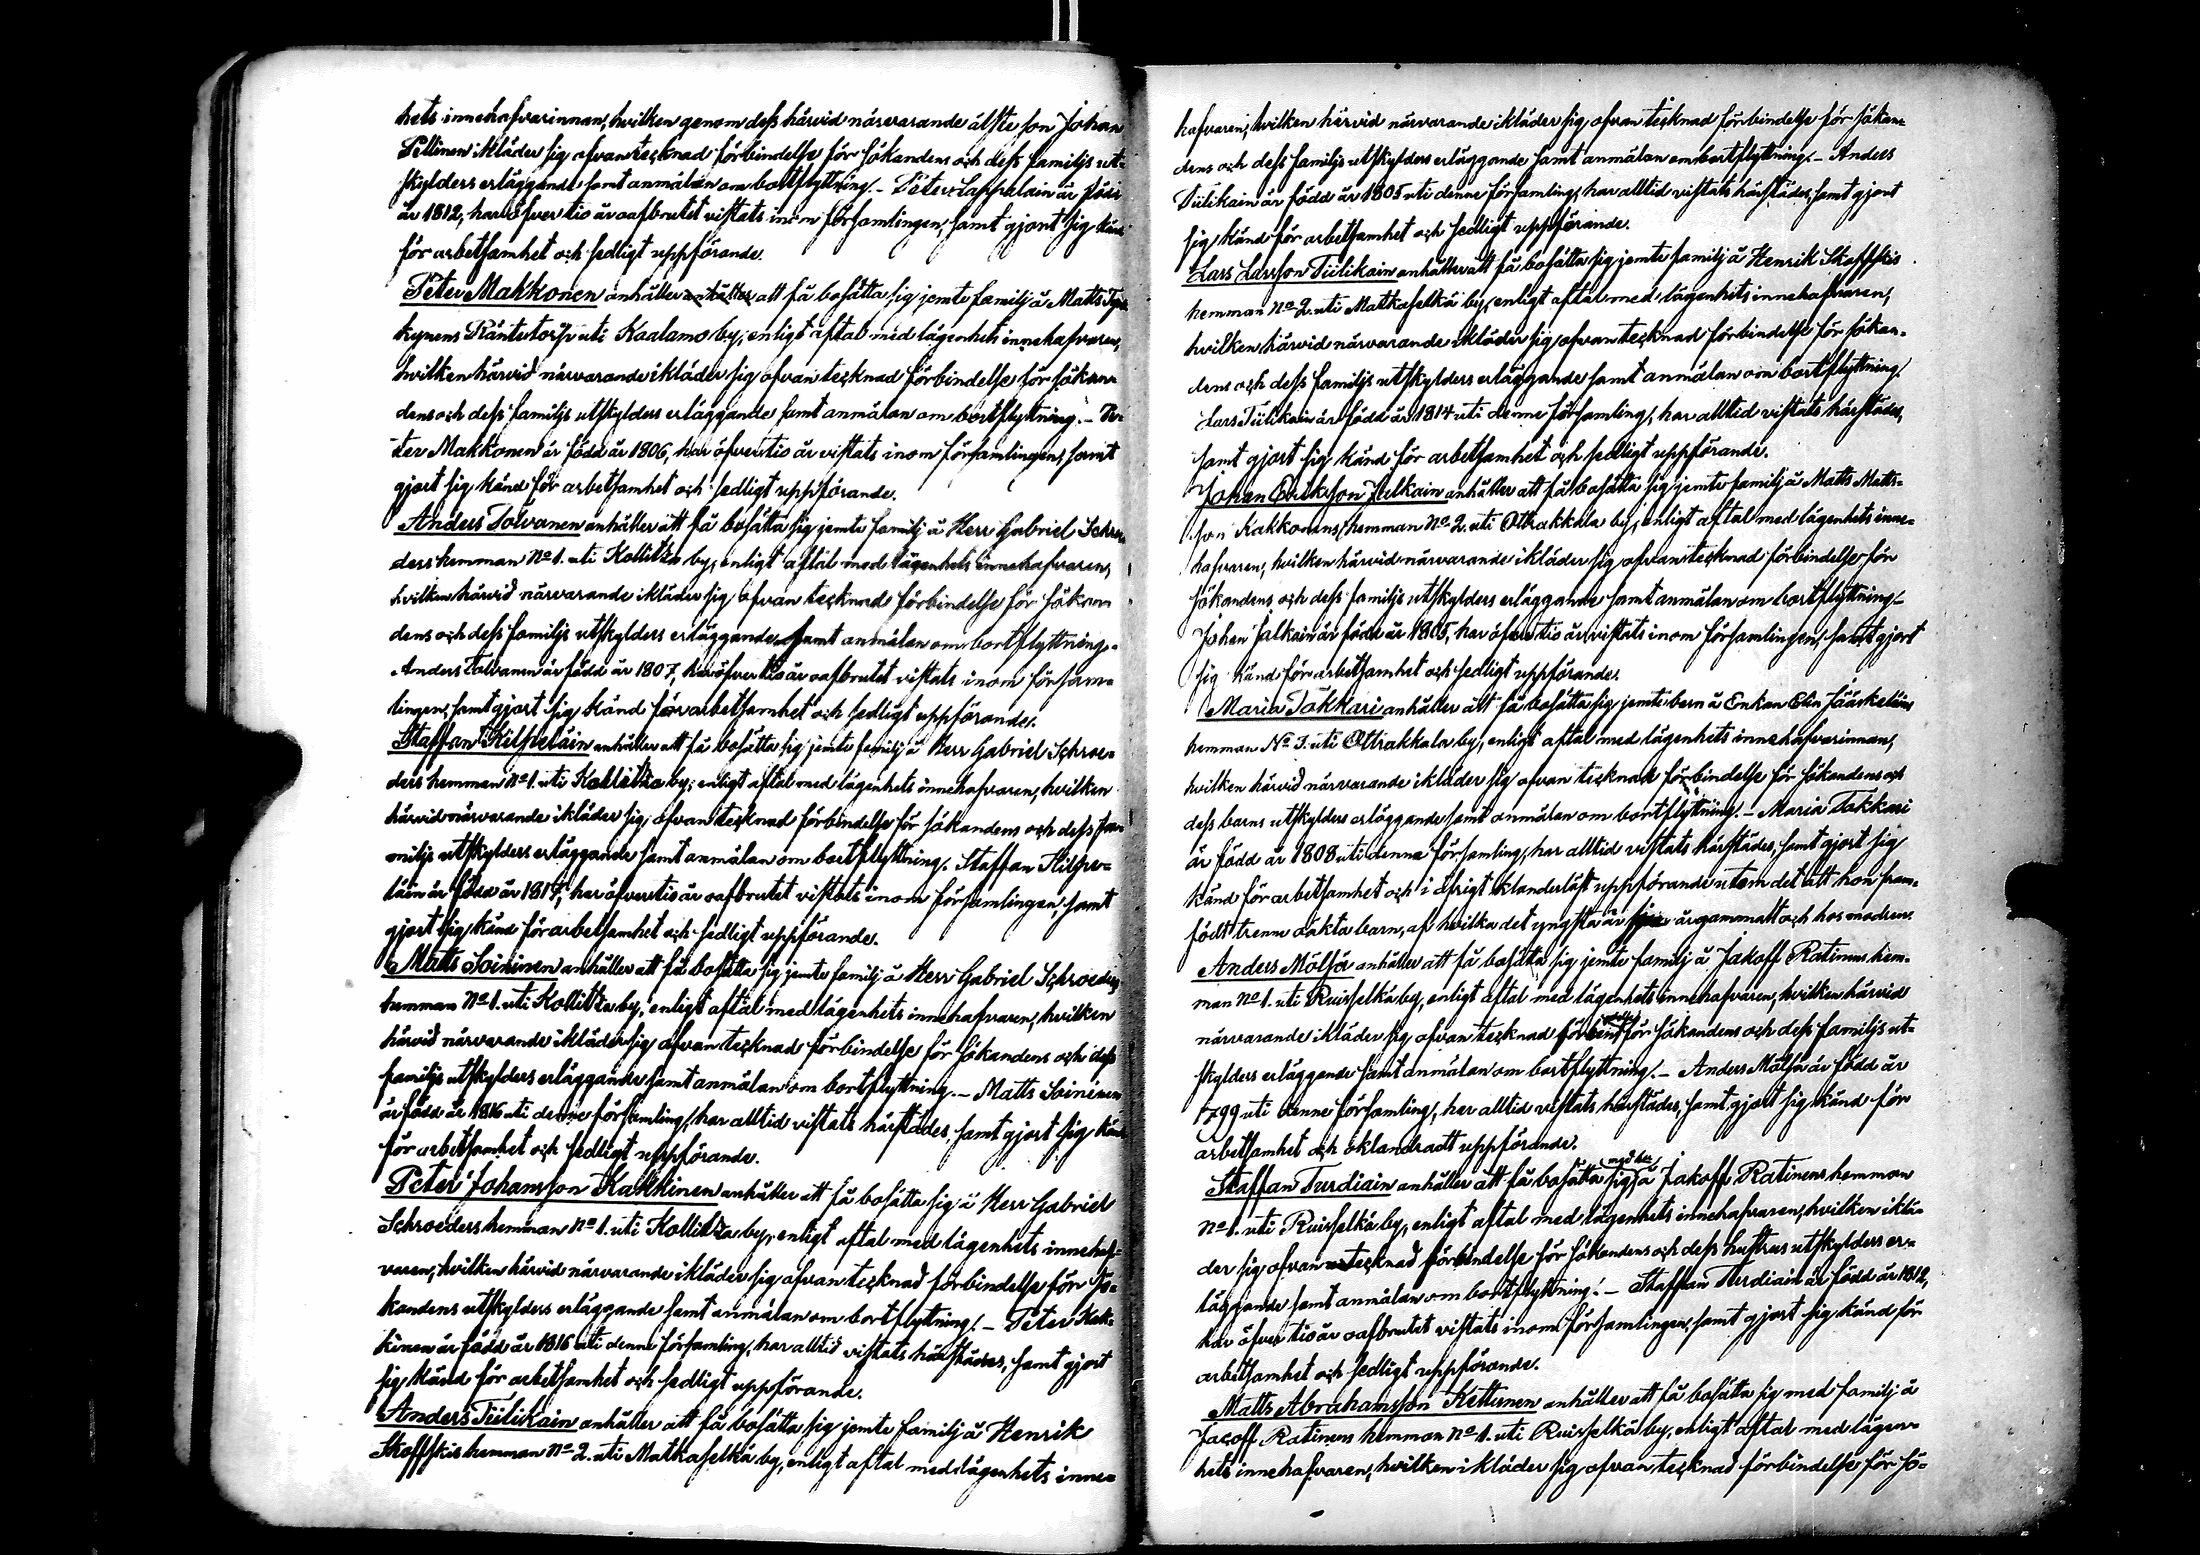 hets innehafvarinnan, hvilken genom dess härvid närvarande äldste son Johan
Pellinen ikläder sig ofvantecknad förbindelse för sökandens och dess familjs ut-
skylders erläggande samt anmälan om bortflyttning. - Peter Lappalain är född
år 1812, har öfver tio år oafbrutet vistats inom församlingen, samt gjort sig känd
för arbetsamhet och sedligt uppförande.
Peter Makkonen anhåller att få bosätta sig jemte familj å Matts
Räntetorp uti Kaalamo by, enligt aftal med lägenhets innehafvaren,
hvilken härvid närvarande ikläder sig ofvantecknad förbindelse för sökan-
dens och dess familjs utskylders erläggande samt anmälan om bortflyttning. - Pe-
ter Makkonen är född år 1806, har öfver tio år vistats inom församlingen, samt
gjort sig känd för arbetsamhet och sedligt uppförande.
Anders Tolvanen anhåller att få bosätta sig jemte familj å Herr Gabriel Schroe-
ders hemman No 1. uti Kollitza by, enligt aftal med lägenhets innehafvaren,
hvilken härvid närvarande ikläder sig ofvantecknad förbindelse för sökan-
dens och dess familjs utskylders erläggande samt anmälan om bortflyttning. -
Anders Tolvanen är född år 1807, har öfver tio år oafbrutet vistats inom försam-
lingen, samt gjort sig känd för arbetsamhet och sedligt uppförande.
Staffan Hilpeläin anhåller att få bosätta sig jemte familj å Herr Gabriel Schroe-
ders hemman No 1. uti Kollitza by, enligt aftal med lägenhets innehafvaren, hvilken
härvid närvarande ikläder sig ofvantecknad förbindelse för sökandens och dess fa-
miljs utskylders erläggande samt anmälan om bortflyttning. Staffan Hilpe-
läin är född år 1817, har öfver tio år oafbrutet vistats inom församlingen, samt
gjort sig känd för arbetsamhet och sedligt uppförande.
Matts Soininen anhåller att få bosätta sig jemte familj å Herr Gabriel Schroeders
hemman No 1. uti Kollitza by, enligt aftal med lägenhets innehafvaren, hvilken
härvid närvarande ikläder sig ofvantecknad förbindelse för sökandens och dess
familjs utskylders erläggande samt anmälan om bortflyttning. - Matts Soininen
är född år 1816 uti denne församling, har alltid vistats härstädes, samt gjort sig känd
för arbetsamhet och sedligt uppförande.
Peter Johansson Kakkinen anhåller att få bosätta sig å Herr Gabriel
Schroeders hemman No 1. uti Kollitza by, enligt aftal med lägenhets innehaf-
varen, hvilken härvid närvarande ikläder sig ofvantecknad förbindelse för sö-
kandens utskylders erläggande samt anmälan om bortflyttning. - Peter Kak-
kinen är född år 1816 uti denne församling, har alltid vistats härstädes, samt gjort
sig känd för arbetsamhet och sedligt uppförande.
Anders Tiilikain anhåller att få bosätta sig jemte familj å Henrik
Skoffskis hemman No 2. uti Matkaselkä by, enligt aftal med lägenhets inne-
hafvaren, hvilken härvid närvarande ikläder sig ofvantecknad förbindelse för sökan-
dens och dess familjs utskylders erläggande samt anmälan om bortflyttning. - Anders
Tiilikain är född år 1805 uti denne församling, har alltid vistats härstädes, samt gjort
sig känd för arbetsamhet och sedligt uppförande.
Lars Larsson Tiilikain anhåller att få bosätta sig jemte familj å Henrik Skoffskis
hemman No 2. uti Matkaselkä by, enligt aftal med lägenhets innehafvaren,
hvilken härvid närvarande ikläder sig ofvantecknad förbindelse för sökan-
dens och dess familjs utskylders erläggande samt anmälan om bortflyttning.
Lars Tiilikain är född år 1814 uti denne församling, har alltid vistats härstädes,
samt gjort sig känd för arbetsamhet och sedligt uppförande.
Johan Eriksson Jalkain anhåller att få bosätta sig jemte familj å Matts Matts-
son Kakkonens hemman No 2. uti Otrakkala by, enligt aftal med lägenhets inne-
hafvaren, hvilken härvid närvarande ikläder sig ofvantecknad förbindelse för
sökandens och dess familjs utskylders erläggande samt anmälan om bortflyttning. -
Johan Jalkain är född år 1805, har öfver tio år vistats inom församlingen, samt gjort
sig känd för arbetsamhet och sedligt uppförande.
Maria Takkari anhåller att få bosätta sig jemte barn å Enkan Elin Jääskeläins
hemman No 3. uti Otrakkala by, enligt aftal med lägenhets innehafvarinnan,
hvilken härvid närvarande ikläder sig ofvantecknad förbindelse för sökandens och
dess barns utskylders erläggande samt anmälan om bortflyttning. - Maria Takkari
är född år 1808 uti denna församling, har alltid vistats härstädes, samt gjort sig
känd för arbetsamhet och i öfrigt klanderlöst uppförande utom det att hon fram-
födt trenne oäkta barn, af hvilka det yngsta är årgammalt och hos modren.
Anders Mölsä anhåller att få bosätta sig jemte familj å Jakoff Ratinens hem-
man No 1. uti Ruisselkä by, enligt aftal med lägenhets innehafvaren, hvilken härvid
närvarande ikläder sig ofvantecknad förbindelse för sökandens och dess familjs ut-
skylders erläggande samt anmälan om bortflyttning. - Anders Mölsä är född år
1799 uti denne församling, har alltid vistats härstädes, samt gjort sig känd för
arbetsamhet och oklandradt uppförande.
Staffan Turdiain anhåller att få bosätta sig å Jakoff Ratinens hemman
No 1. uti Ruisselkä by, enligt aftal med lägenhets innehafvaren, hvilken iklä-
der sig ofvantecknad förbindelse för sökandens och dess hustrus utskylders er-
läggande samt anmälan om bortflyttning. - Staffan Turdiain är född år 1812,
har öfver tio år oafbrutet vistats inom församlingen, samt gjort sig känd för
arbetsamhet och sedligt uppförande.
Matts Abrahamsson Kettunen anhåller att få bosätta sig med familj å
Jacoff Ratinens hemman No 1. uti Ruisselkä by, enligt aftal med lägen-
hets innehafvaren, hvilken ikläder sig ofvantecknad förbindelse för sö-